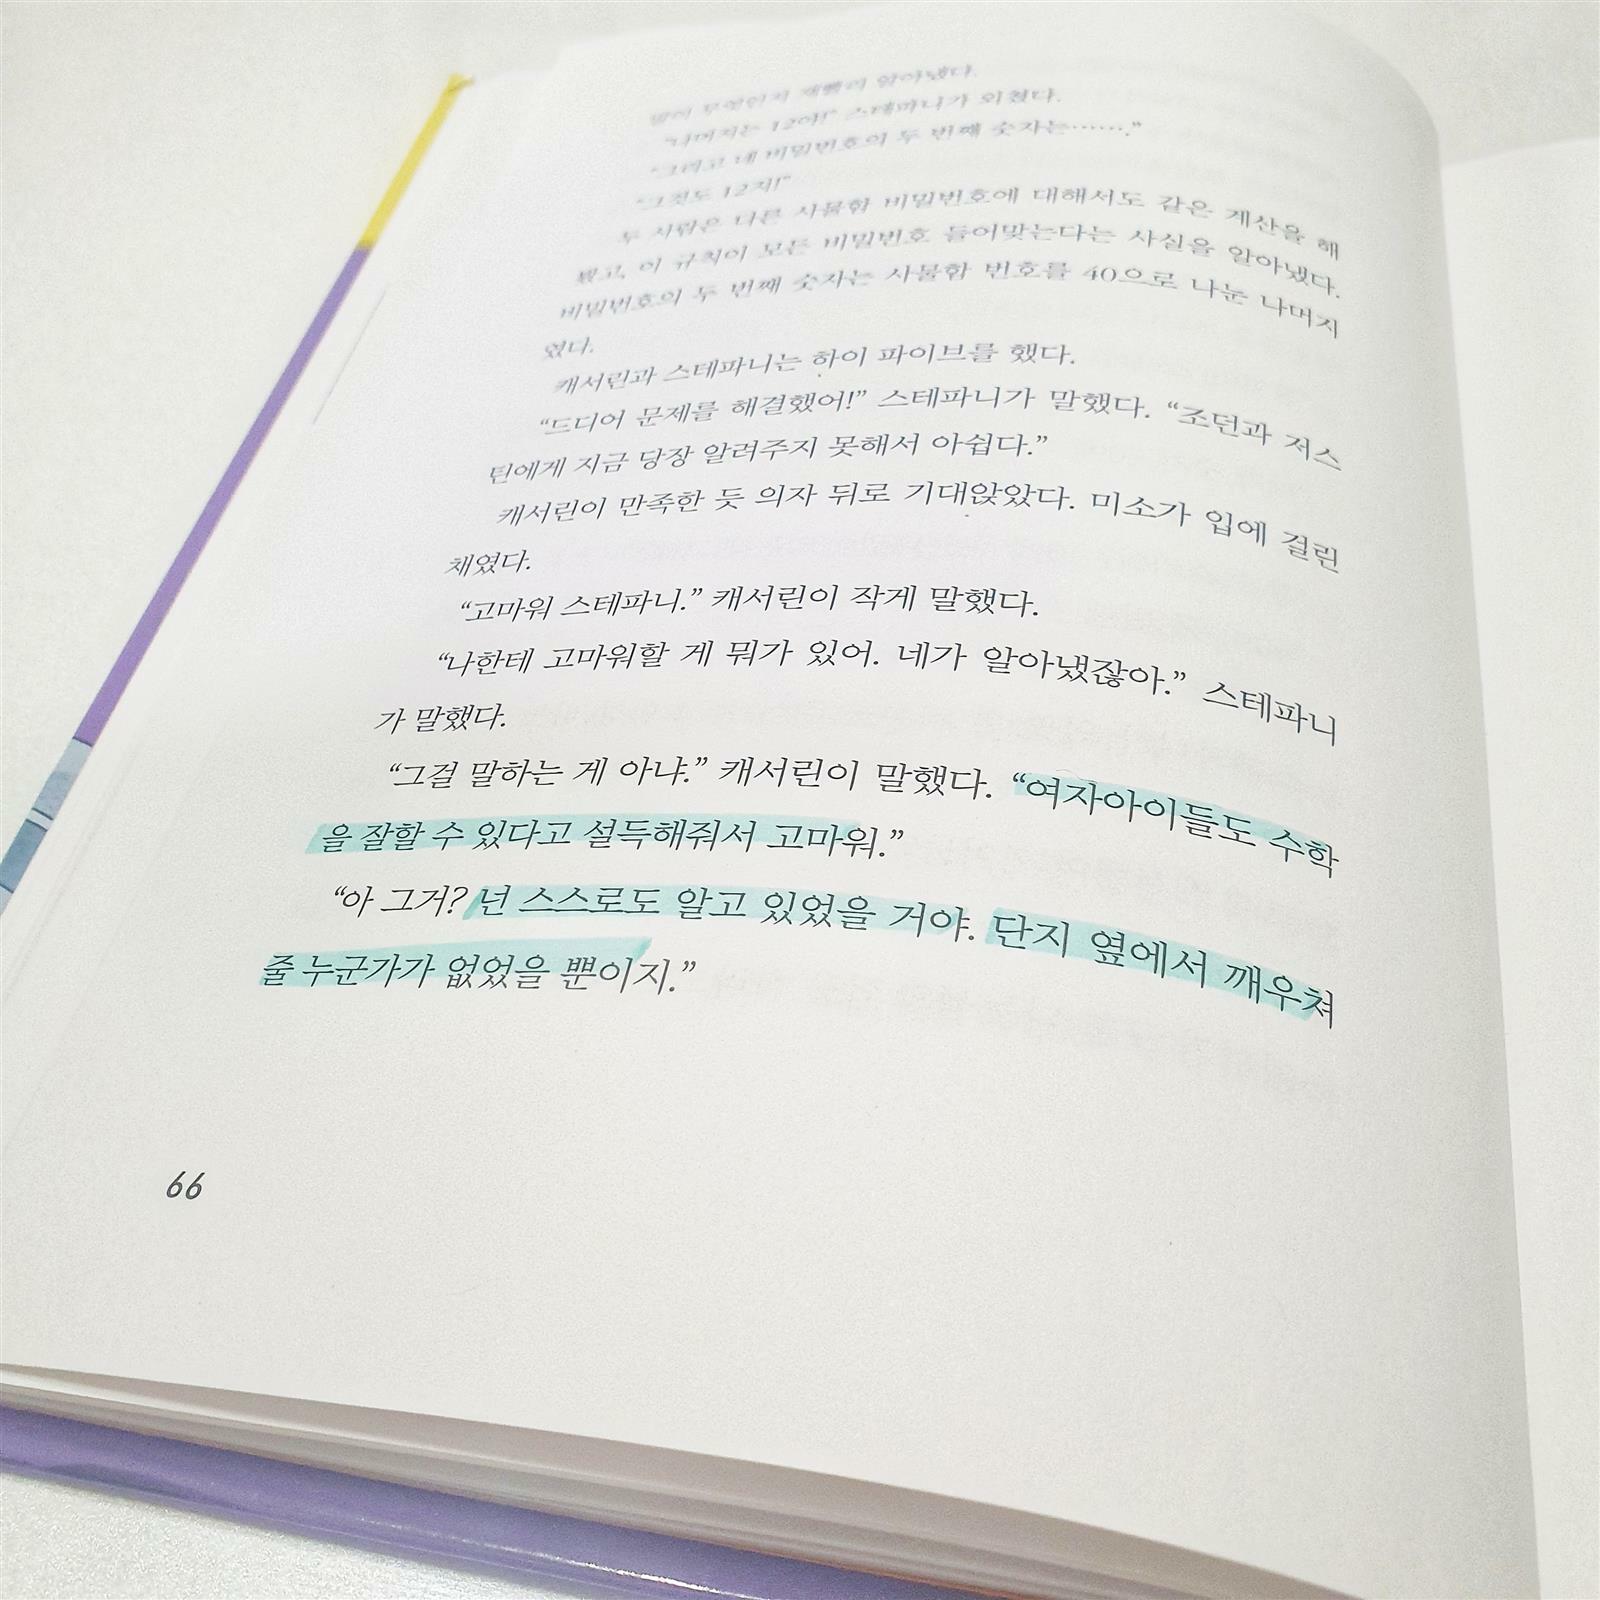 말이 무엇인지 재빨리 알아냈다.
“나머지는 12야!” 스테파니가 외쳤다.
“그리고 네 비밀번호의 두 번째 숫자는…….”
“그것도 12지!”
두 사람은 다른 사물함 비밀번호에 대해서도 같은 계산을 해
봤고, 이 규칙이 모든 비밀번호 들어맞는다는 사실을 알아냈다.
비밀번호의 두 번째 숫자는 사물함 번호를 40으로 나눈 나머지
였다.
캐서린과 스테파니는 하이 파이브를 했다.
“드디어 문제를 해결했어!” 스테파니가 말했다. “조던과 저스
틴에게 지금 당장 알려주지 못해서 아쉽다.”
캐서린이 만족한 듯 의자 뒤로 기대앉았다. 미소가 입에 걸린
채였다.
“고마워 스테파니.” 캐서린이 작게 말했다.
“나한테 고마워할 게 뭐가 있어. 네가 알아냈잖아.” 스테파니
가 말했다.
“그걸 말하는 게 아냐.” 캐서린이 말했다. “여자아이들도 수학
을 잘할 수 있다고 설득해줘서 고마워.”
“아 그거? 넌 스스로도 알고 있었을 거야. 단지 옆에서 깨우쳐
줄 누군가가 없었을 뿐이지.”
66